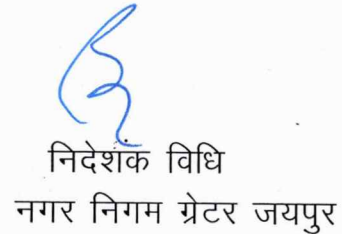 निदेशक विधि
नगर निगम ग्रेटर जयपुर